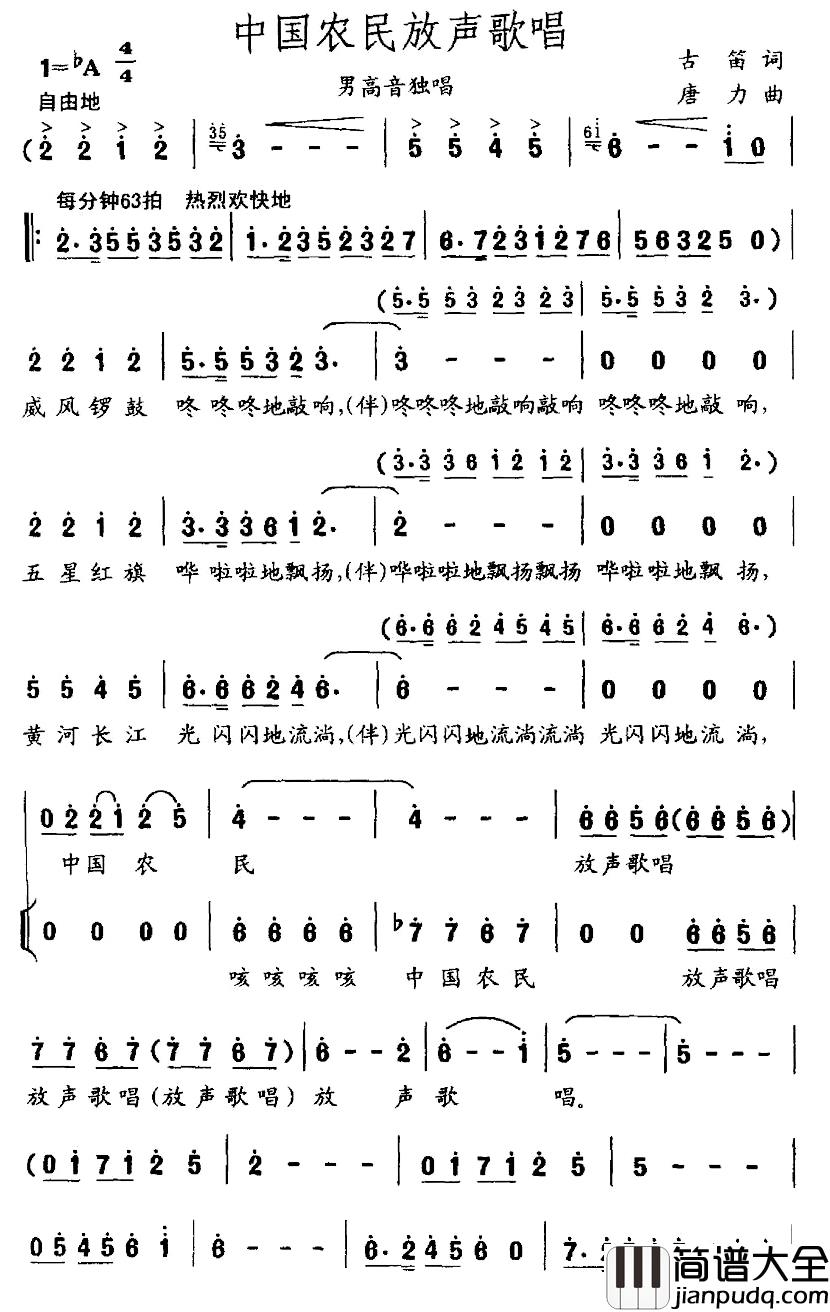 中国农民放声歌唱
1=♭A 4/4
古笛词
自由地
男高音独唱
唐力曲
(2 2 1 2 | 35 3 - - - | 5 5 4 5 | 61 6 - - 1 0 |
每分钟63拍 热烈欢快地
‖: 2·3553532 | 1·2352327 | 6·7231276 | 563250) |
(5·5 53 23 23 | 5·5 53 2 3·)
2 2 1 2 | 5·5 53 2 3· | 3 - - - | 0 0 0 0 |
威风锣鼓 咚咚咚地敲响,(伴)咚咚咚地敲响敲响 咚咚咚地敲响,
(3·3 36 12 12 | 3·3 36 1 2·)
2 2 1 2 | 3·3 36 1 2· | 2 - - - | 0 0 0 0 |
五星红旗 哗啦啦地飘扬,(伴)哗啦啦地飘扬飘扬 哗啦啦地飘扬,
(6·6 62 45 45 | 6·6 62 4 6·)
5 5 4 5 | 6·6 62 4 6· | 6 - - - | 0 0 0 0 |
黄河长江 光闪闪地流淌,(伴)光闪闪地流淌流淌 光闪闪地流淌,
02 21 2 5 | 4 - - - | 4 - - - | 66 56 (66 56) |
中国农民 放声歌唱
0 0 0 0 | 6 6 6 6 | ♭7 7 6 7 | 0 0 66 56
咳咳咳咳 中国农民 放声歌唱
77 67 (77 67) | 6 - - 2 | 6 - - 1 | 5 - - - | 5 - - - |
放声歌唱(放声歌唱)放声歌唱。
(01 71 2 5 | 2 - - - | 01 71 2 5 | 5 - - - |
05 45 6 1 | 6 - - - | 6·2 45 6 0 | 7·
简谱大全
jianpudq.com